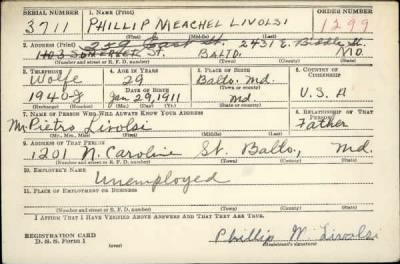 SERIAL NUMBER 1. NAME (Print) ORDER NUMBER
3711 PHILLIP MEACHEL LIVOLSI 1299
(First) (Middle) (Last)
2. ADDRESS (Print) 229 East St. 2431 E. Biddle St.
1403 SOMERSET ST. BALTO. MD.
(Number and street or R. F. D. number) (Town) (County) (State)
3. TELEPHONE 4. AGE IN YEARS 5. PLACE OF BIRTH 6. COUNTRY OF CITIZENSHIP
Wolfe 29 Balto. Md.
DATE OF BIRTH
1940-J Jan 29, 1911 Md. U.S.A
(Exchange) (Number) (Mo.) (Day) (Yr.) (State or country)
7. NAME OF PERSON WHO WILL ALWAYS KNOW YOUR ADDRESS 8. RELATIONSHIP OF THAT PERSON
Mr. Pietro Livolsi Father
(Mr., Mrs., Miss) (First) (Middle) (Last)
9. ADDRESS OF THAT PERSON
1201 N. Caroline St. Balto., Md.
(Number and street or R. F. D. number) (Town) (County) (State)
10. EMPLOYER'S NAME
Unemployed
11. PLACE OF EMPLOYMENT OR BUSINESS
(Number and street or R. F. D. number) (Town) (County) (State)
I AFFIRM THAT I HAVE VERIFIED ABOVE ANSWERS AND THAT THEY ARE TRUE.
REGISTRATION CARD
D. S. S. Form 1 (over) Phillip M. Livolsi
(Registrant's signature)